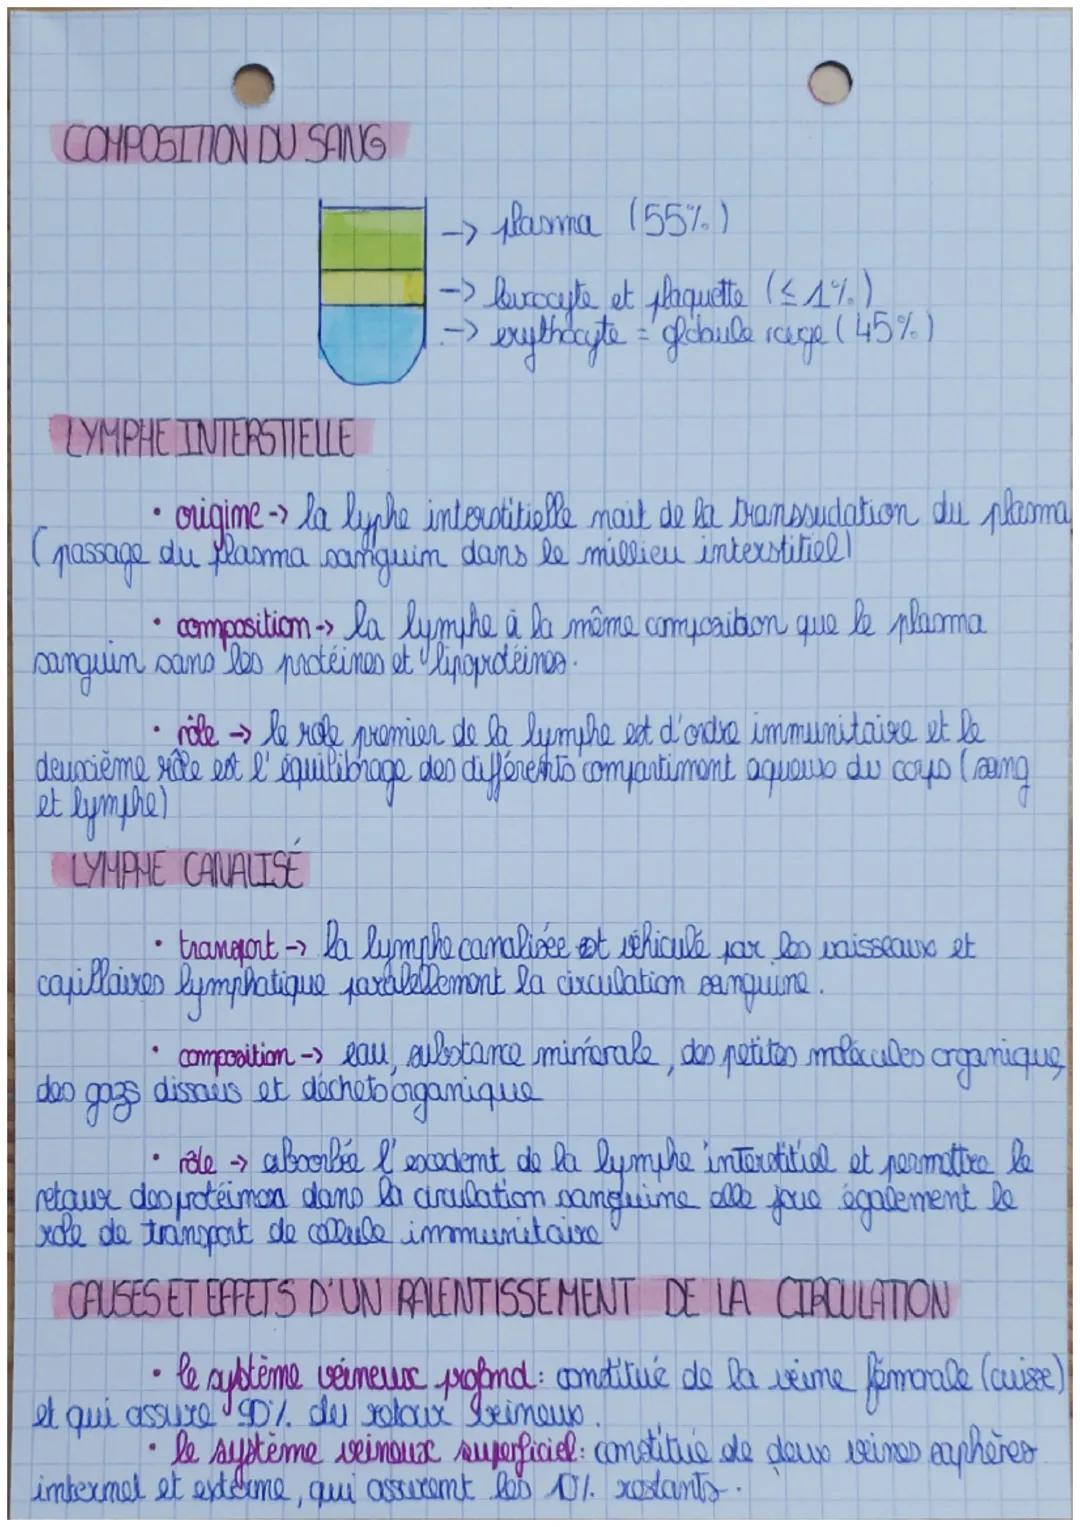 COMPOSITION DU SANG
-> plasma (55%)
-> leucocyte et plaquette (≤ 1%)
-> erythocyte = globule rouge (45%)
LYMPHE INTERSTIELLE
• origine -> la lyphe interstitielle nait de la transsudation du plasma
(passage du plasma sanguin dans le millieu interstitiel)
• composition -> la lymphe à la même composition que le plasma
sanguin sans les protéines et lipoprotéines.
• rôle -> le role premier de la lymphe est d'ordre immunitaire et le
deuxième rôle est l'équilibrage des différents compartiment aqueux du corps (sang
et lymphe)
LYMPHE CANALISÉ
• transport -> la lymphe canalisée est véhiculé par les vaisseaux et
capillaires lymphatique paralellement la circulation sanguine.
• composition -> eau, substance minérale, des petites molécules organique,
des gazs dissous et déchets organique
• rôle -> absorbée l'excedent de la lymphe interstitiel et permettre le
retour des protéines dans la circulation sanguine elle joue également le
role de transport de cellule immunitaire
CAUSES ET EFFETS D'UN RALENTISSEMENT DE LA CIRCULATION
• le système veineux profond: constitué de la veine fémorale (cuisse)
et qui assure 90% du retour veineux.
• le système veineux superficiel: constitué de deux veines saphères
internel et externe, qui assurent les 10% restants.